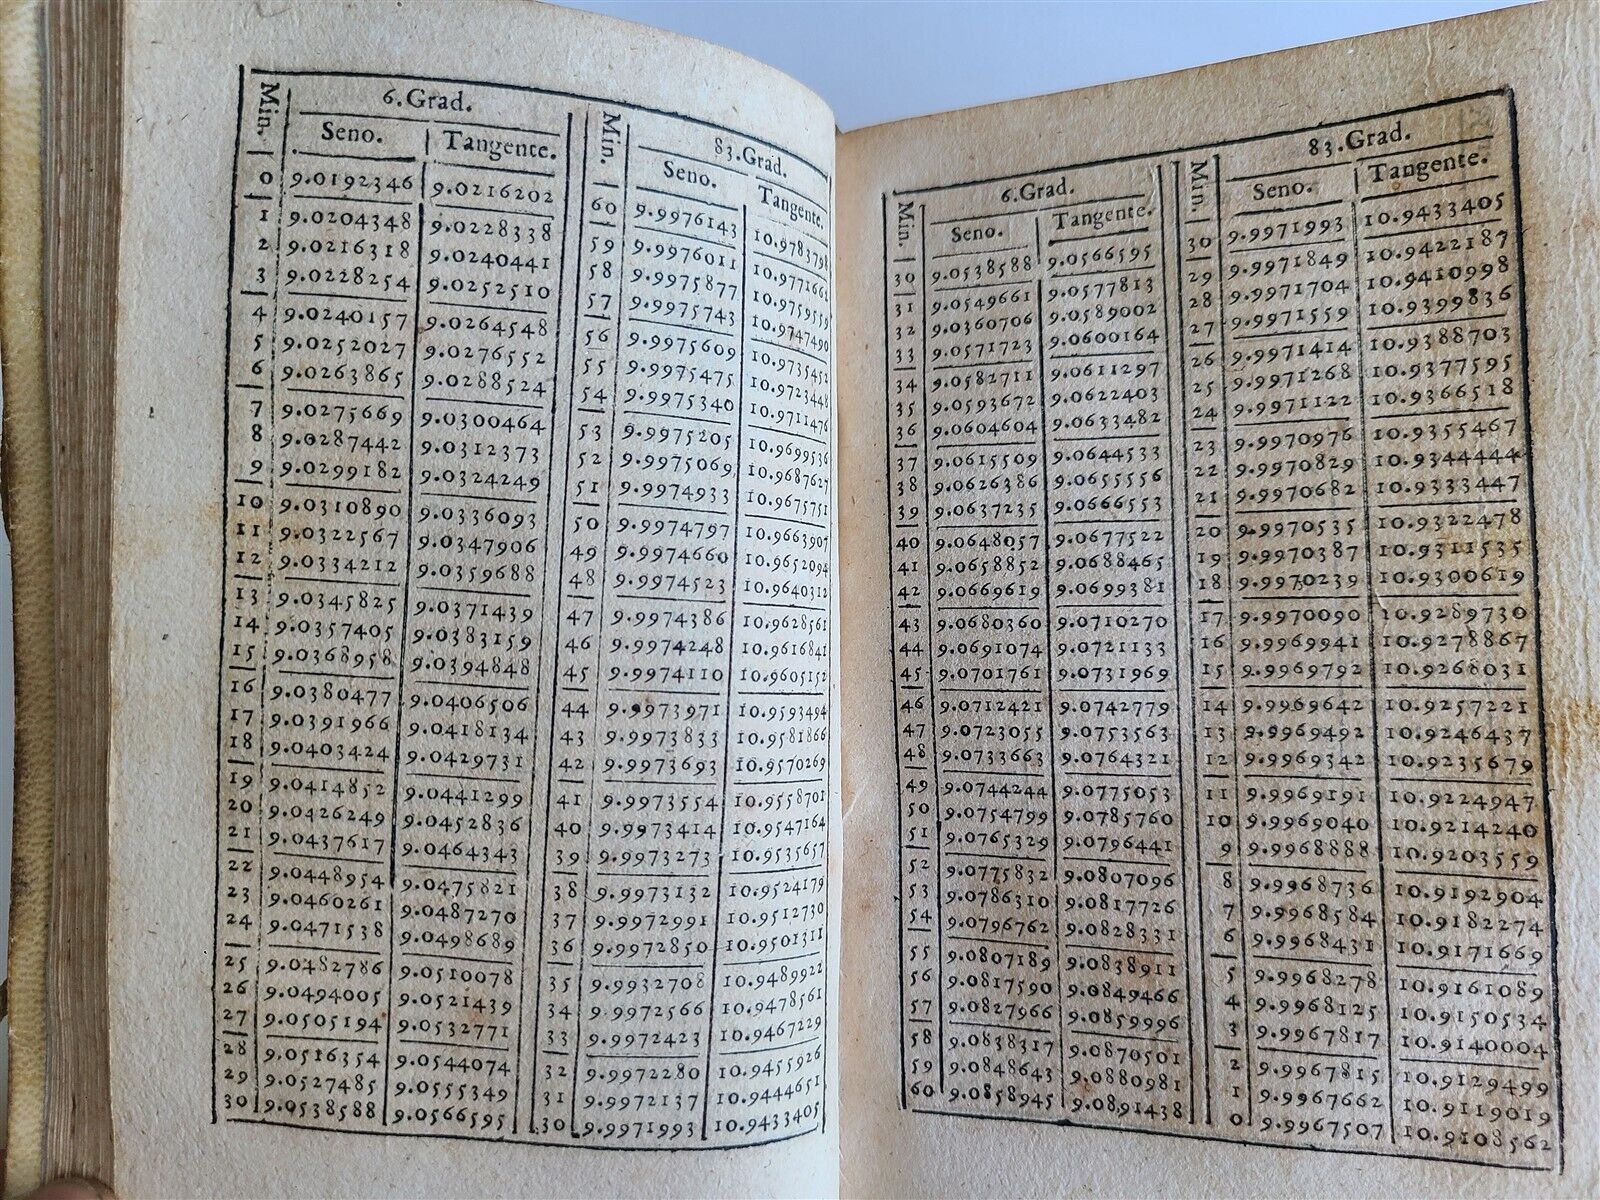 6.Grad. 83.Grad.
Min. Seno. Tangente. Min. Seno. Tangente.
0 9.0192346 9.0216202 60 9.9976143 10.9783798
1 9.0204348 9.0228338 59 9.9976011 10.9771662
2 9.0216318 9.0240441 58 9.9975877 10.9759559
3 9.0228254 9.0252510 57 9.9975743 10.9747490
4 9.0240157 9.0264548 56 9.9975609 10.9735452
5 9.0252027 9.0276552 55 9.9975475 10.9723448
6 9.0263865 9.0288524 54 9.9975340 10.9711476
7 9.0275669 9.0300464 53 9.9975205 10.9699536
8 9.0287442 9.0312373 52 9.9975069 10.9687627
9 9.0299182 9.0324249 51 9.9974933 10.9675751
10 9.0310890 9.0336093 50 9.9974797 10.9663907
11 9.0322567 9.0347906 49 9.9974660 10.9652094
12 9.0334212 9.0359688 48 9.9974523 10.9640312
13 9.0345825 9.0371439 47 9.9974386 10.9628561
14 9.0357405 9.0383159 46 9.9974248 10.9616841
15 9.0368958 9.0394848 45 9.9974110 10.9605152
16 9.0380477 9.0406506 44 9.9973971 10.9593494
17 9.0391966 9.0418134 43 9.9973833 10.9581866
18 9.0403424 9.0429731 42 9.9973693 10.9570269
19 9.0414852 9.0441299 41 9.9973554 10.9558701
20 9.0426249 9.0452836 40 9.9973414 10.9547164
21 9.0437617 9.0464343 39 9.9973273 10.9535657
22 9.0448954 9.0475821 38 9.9973132 10.9524179
23 9.0460261 9.0487270 37 9.9972991 10.9512730
24 9.0471538 9.0498689 36 9.9972850 10.9501311
25 9.0482786 9.0510078 35 9.9932708 10.9489922
26 9.0494005 9.0521439 34 9.9972566 10.9478561
27 9.0505194 9.0532771 33 9.9972423 10.9467229
28 9.0516354 9.0544074 32 9.9972280 10.9455926
29 9.0527485 9.0555349 31 9.9972137 10.9444651
30 9.0538588 9.0566595 30 9.9971993 10.9433405
6.Grad. 83.Grad.
Min. Seno. Tangente. Min. Seno. Tangente.
30 9.0538588 9.0566595 30 9.9971993 10.9433405
31 9.0549661 9.0577813 29 9.9971849 10.9422187
32 9.0360706 9.0589002 28 9.9971704 10.9410998
33 9.0571723 9.0600164 27 9.9971559 10.9399836
34 9.0582711 9.0611297 26 9.9971414 10.9388703
35 9.0593672 9.0622403 25 9.9971268 10.9377595
36 9.0604604 9.0633482 24 9.9971122 10.9366518
37 9.0615509 9.0644533 23 9.9970976 10.9355467
38 9.0626386 9.0655556 22 9.9970829 10.9344444
39 9.0637235 9.0666553 21 9.9970682 10.9333447
40 9.0648057 9.0677522 20 9.9970535 10.9322478
41 9.0658852 9.0688465 19 9.9970387 10.9311535
42 9.0669619 9.0699381 18 9.9970239 10.9300619
43 9.0680360 9.0710270 17 9.9970090 10.9289730
44 9.0691074 9.0721133 16 9.9969941 10.9278867
45 9.0701761 9.0731969 15 9.9969792 10.9268031
46 9.0712421 9.0742779 14 9.9969642 10.9257221
47 9.0723055 9.0753563 13 9.9969492 10.9246437
48 9.0733663 9.0764321 12 9.9969342 10.9235679
49 9.0744244 9.0775053 11 9.9969191 10.9224947
50 9.0754799 9.0785760 10 9.9969040 10.9214240
51 9.0765329 9.0796441 9 9.9968888 10.9203559
52 9.0775832 9.0807096 8 9.9968736 10.9192904
53 9.0786310 9.0817726 7 9.9968584 10.9182274
54 9.0796762 9.0828331 6 9.9968431 10.9171669
55 9.0807189 9.0838911 5 9.9968278 10.9161089
56 9.0817590 9.0849466 4 9.9968125 10.9150534
57 9.0827966 9.0859996 3 9.9967817 10.9140004
58 9.0838317 9.0870501 2 9.9967815 10.9129499
59 9.0848643 9.0880981 1 9.9967662 10.9119019
60 9.0858945 9.0891438 0 9.9967507 10.9108562